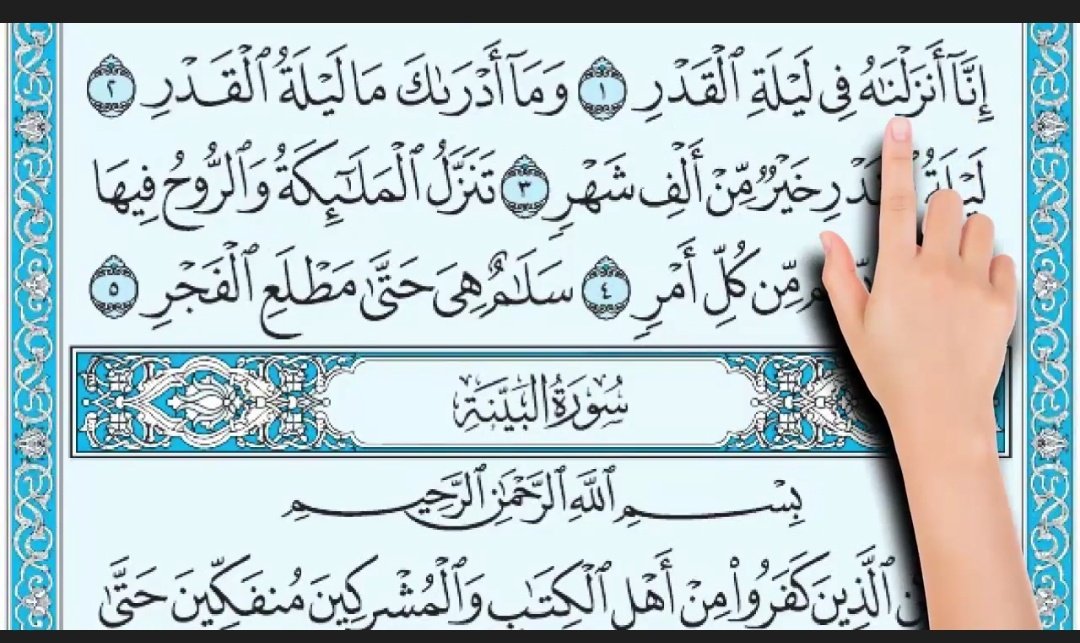 إِنَّآ أَنزَلْنَـٰهُ فِى لَيْلَةِ ٱلْقَدْرِ ١ وَمَآ أَدْرَىٰكَ مَا لَيْلَةُ ٱلْقَدْرِ ٢
لَيْلَةُ خَيْرٌ مِّنْ أَلْفِ شَهْرٍ ٣ تَنَزَّلُ ٱلْمَلَـٰٓئِكَةُ وَٱلرُّوحُ فِيهَا
مِّن كُلِّ أَمْرٍ ٤ سَلَـٰمٌ هِىَ حَتَّىٰ مَطْلَعِ ٱلْفَجْرِ ٥
سُورَةُ البَيِّنَةِ
بِسْمِ ٱللَّهِ ٱلرَّحْمَـٰنِ ٱلرَّحِيمِ
ٱلَّذِينَ كَفَرُوا۟ مِنْ أَهْلِ ٱلْكِتَـٰبِ وَٱلْمُشْرِكِينَ مُنفَكِّينَ حَتَّىٰ